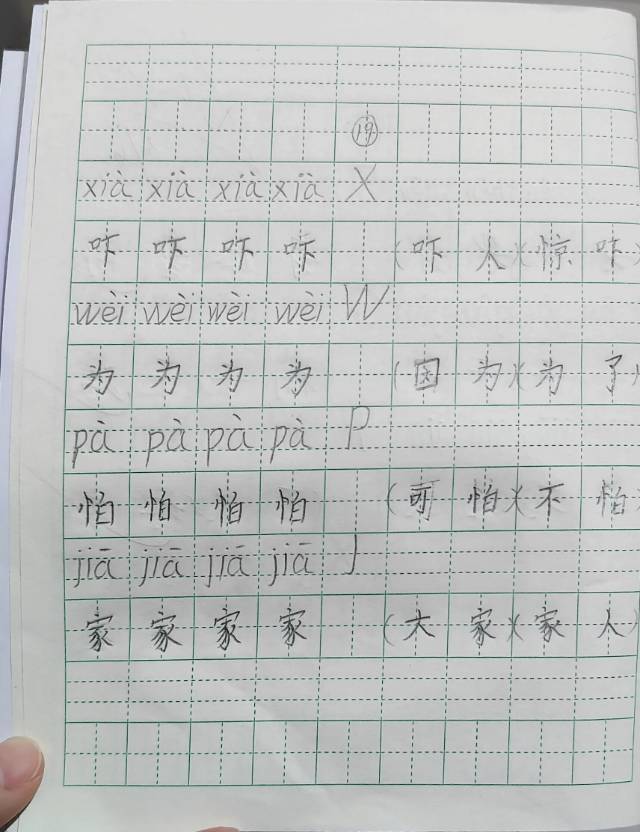 ⑲
xià xià xià xià X
吓 吓 吓 吓 (吓 人)(惊 吓)
wèi wèi wèi wèi W
为 为 为 为 (因 为)(为 了)
pà pà pà pà P
怕 怕 怕 怕 (可 怕)(不 怕)
jiā jiā jiā jiā J
家 家 家 家 (大 家)(家 人)